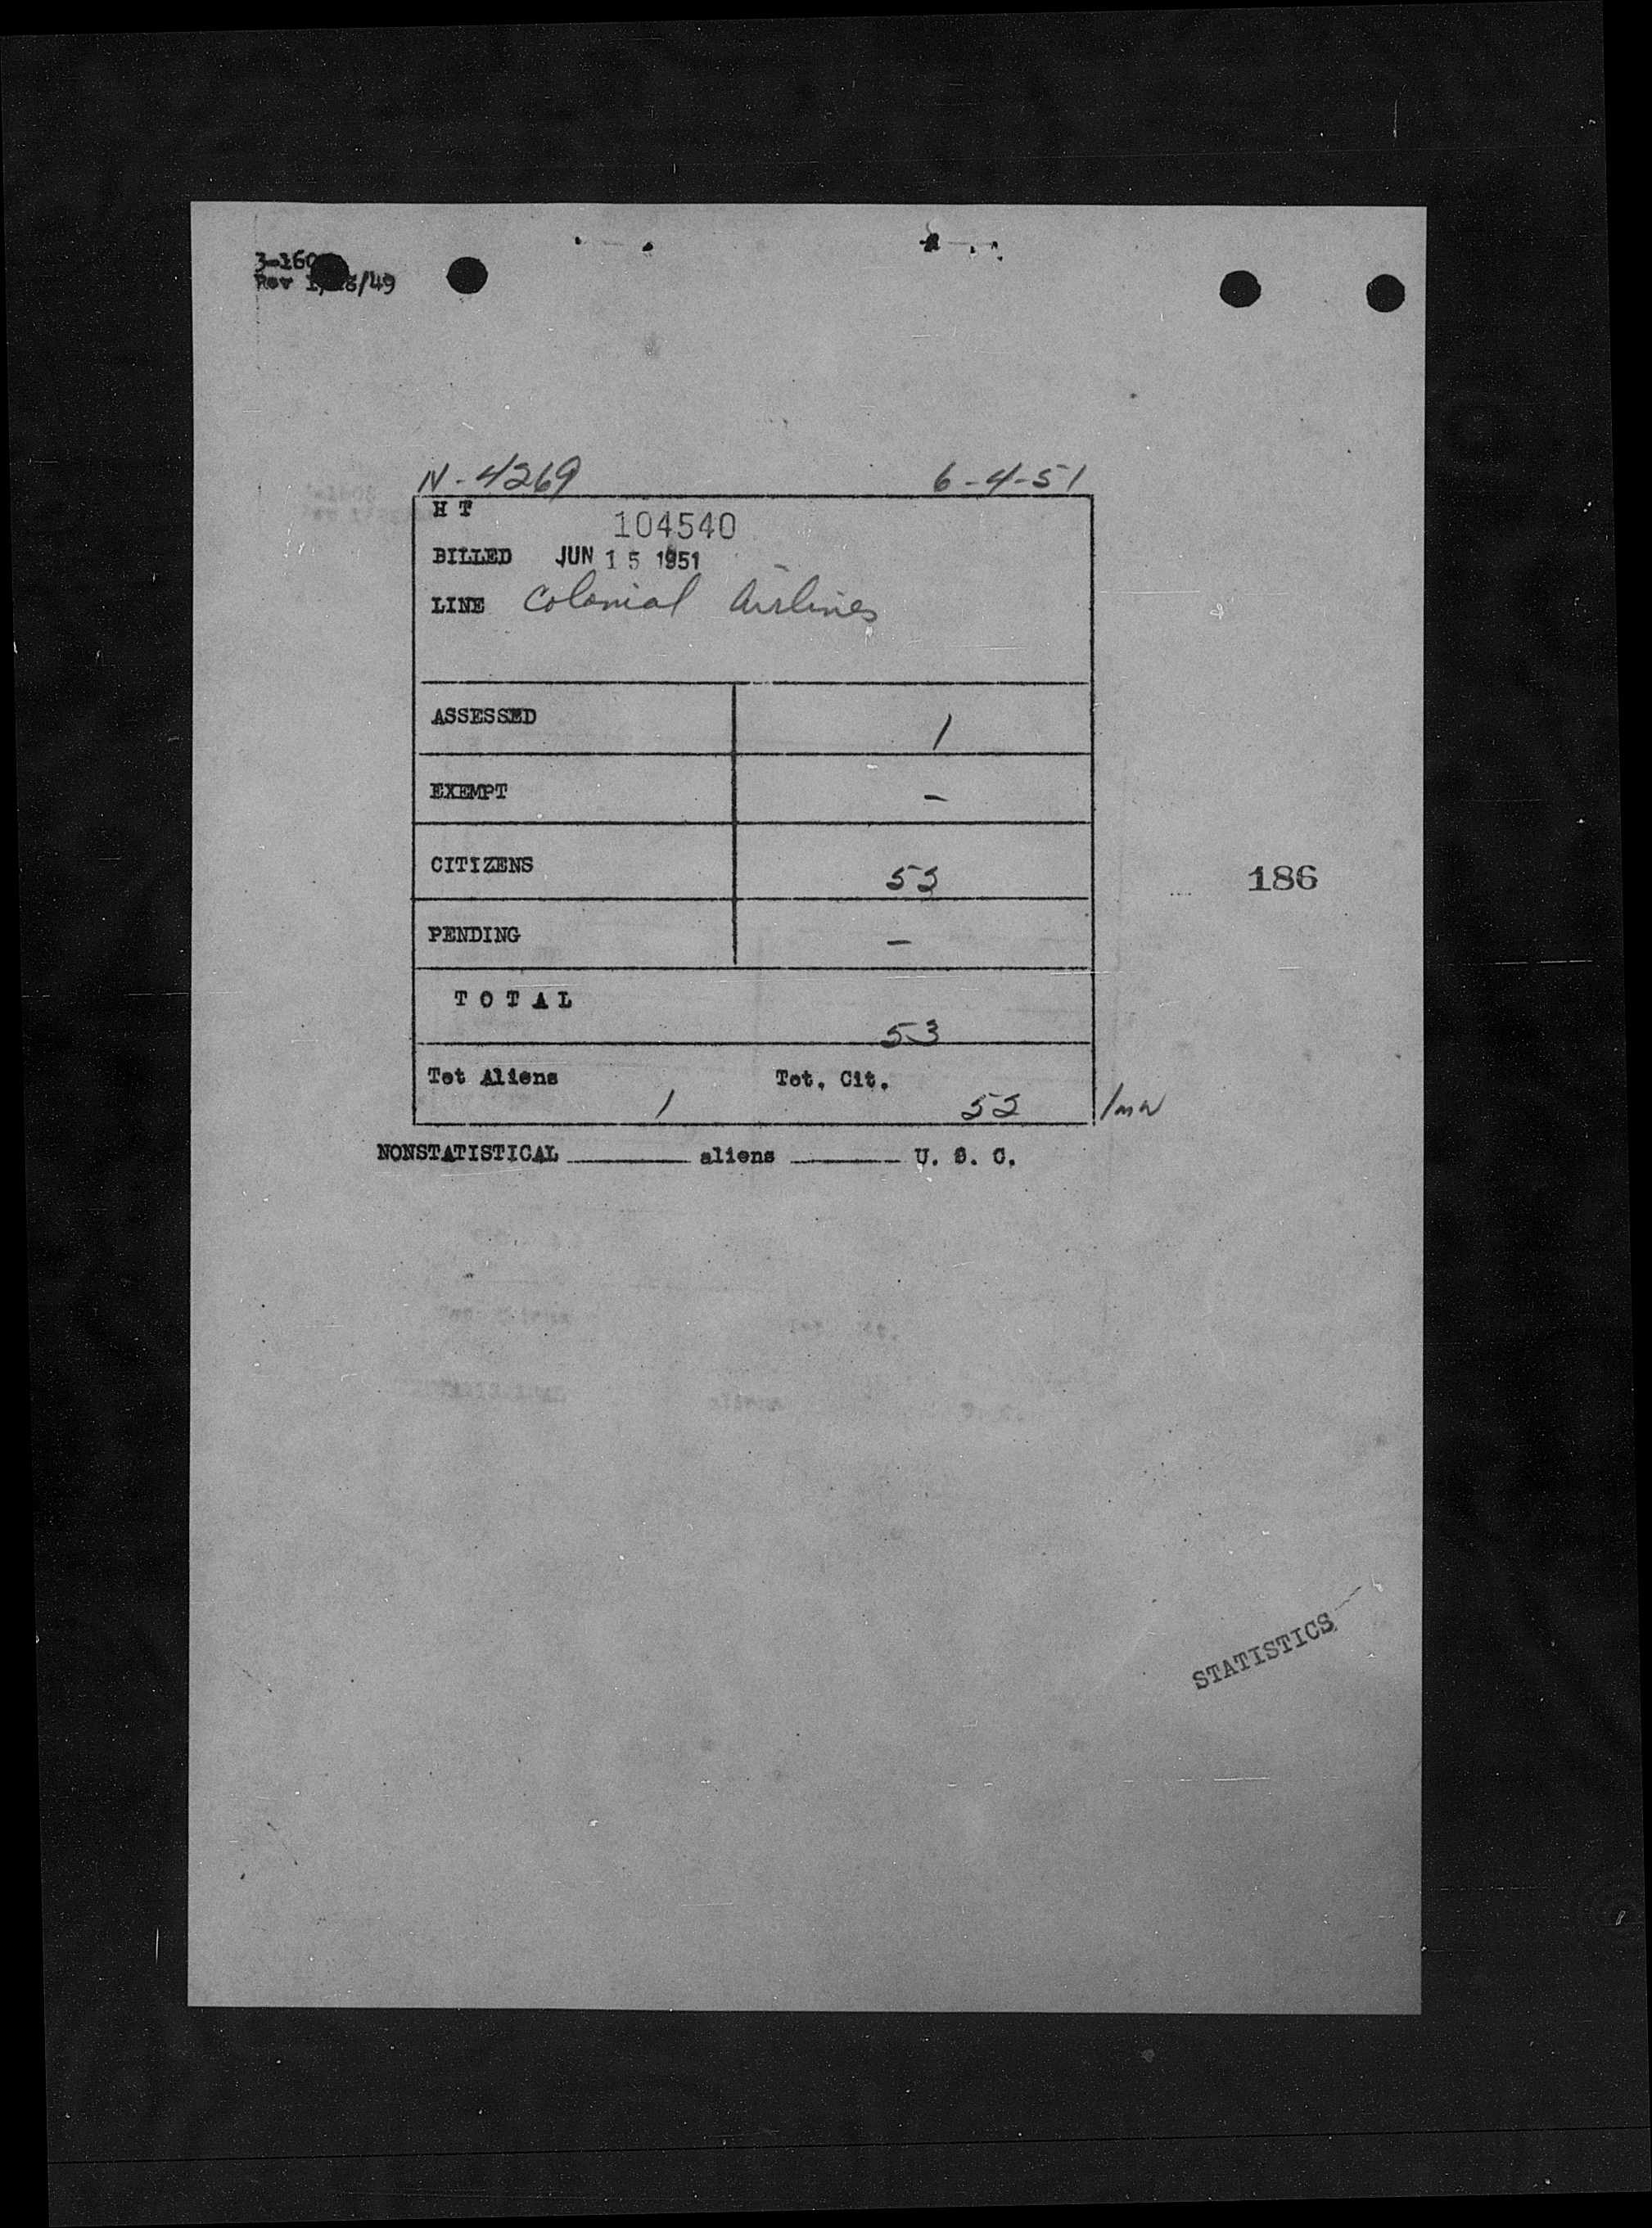 3-160
Rev 1/ 6/49
N-4269 6-4-51
H T 104540
BILLED JUN 15 1951
LINE Colonial Airlines
ASSESSED 1
EXEMPT -
CITIZENS 52
PENDING -
186
TOTAL
53
Tot Aliens Tot. Cit.
1 52
NONSTATISTICAL ______ aliens ______ U. S. C.
STATISTICS